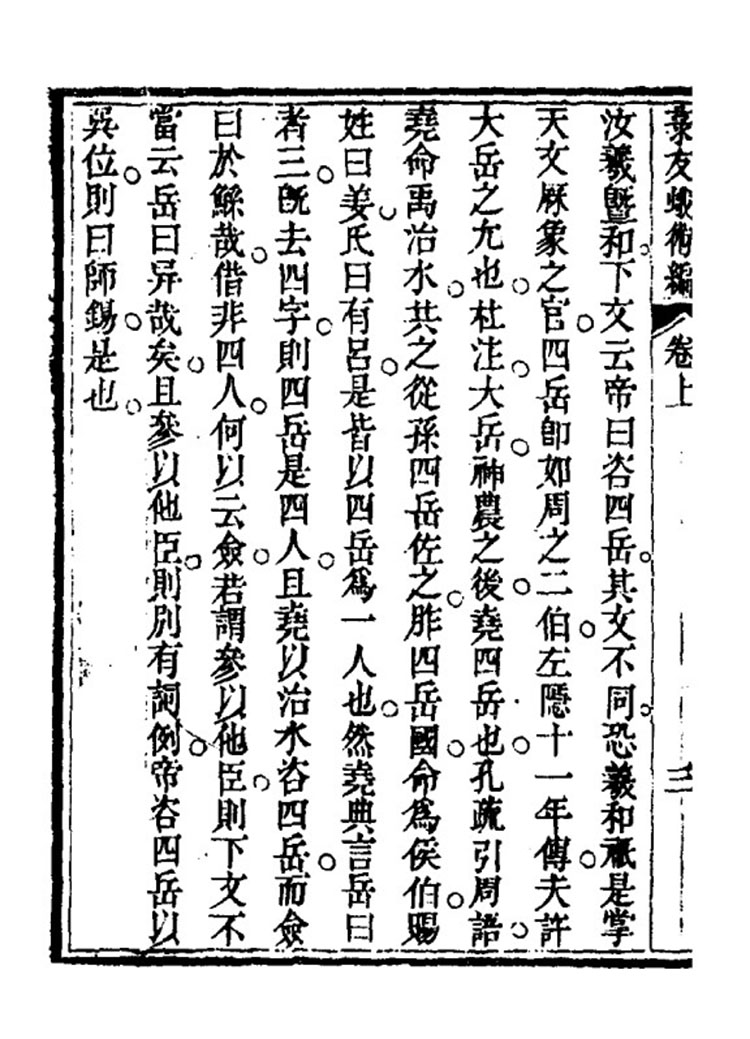 菉友蛾術編 卷上 三
汝羲曁和下文云帝曰咨四岳其文不同恐羲和祗是掌
天文厤象之官四岳卽如周之二伯左隱十一年傳夫許
大岳之允也杜注大岳神農之後堯四岳也孔疏引周語
堯命禹治水共之從孫四岳佐之胙四岳國命爲侯伯賜
姓曰姜氏曰有呂是皆以四岳爲一人也然堯典言岳曰
者三旣去四字則四岳是四人且堯以治水咨四岳而僉
曰於鯀哉偕非四人何以云僉若謂參以他臣則下文不
當云岳曰异哉矣且參以他臣則別有詞例帝咨四岳以
巽位則曰師錫是也